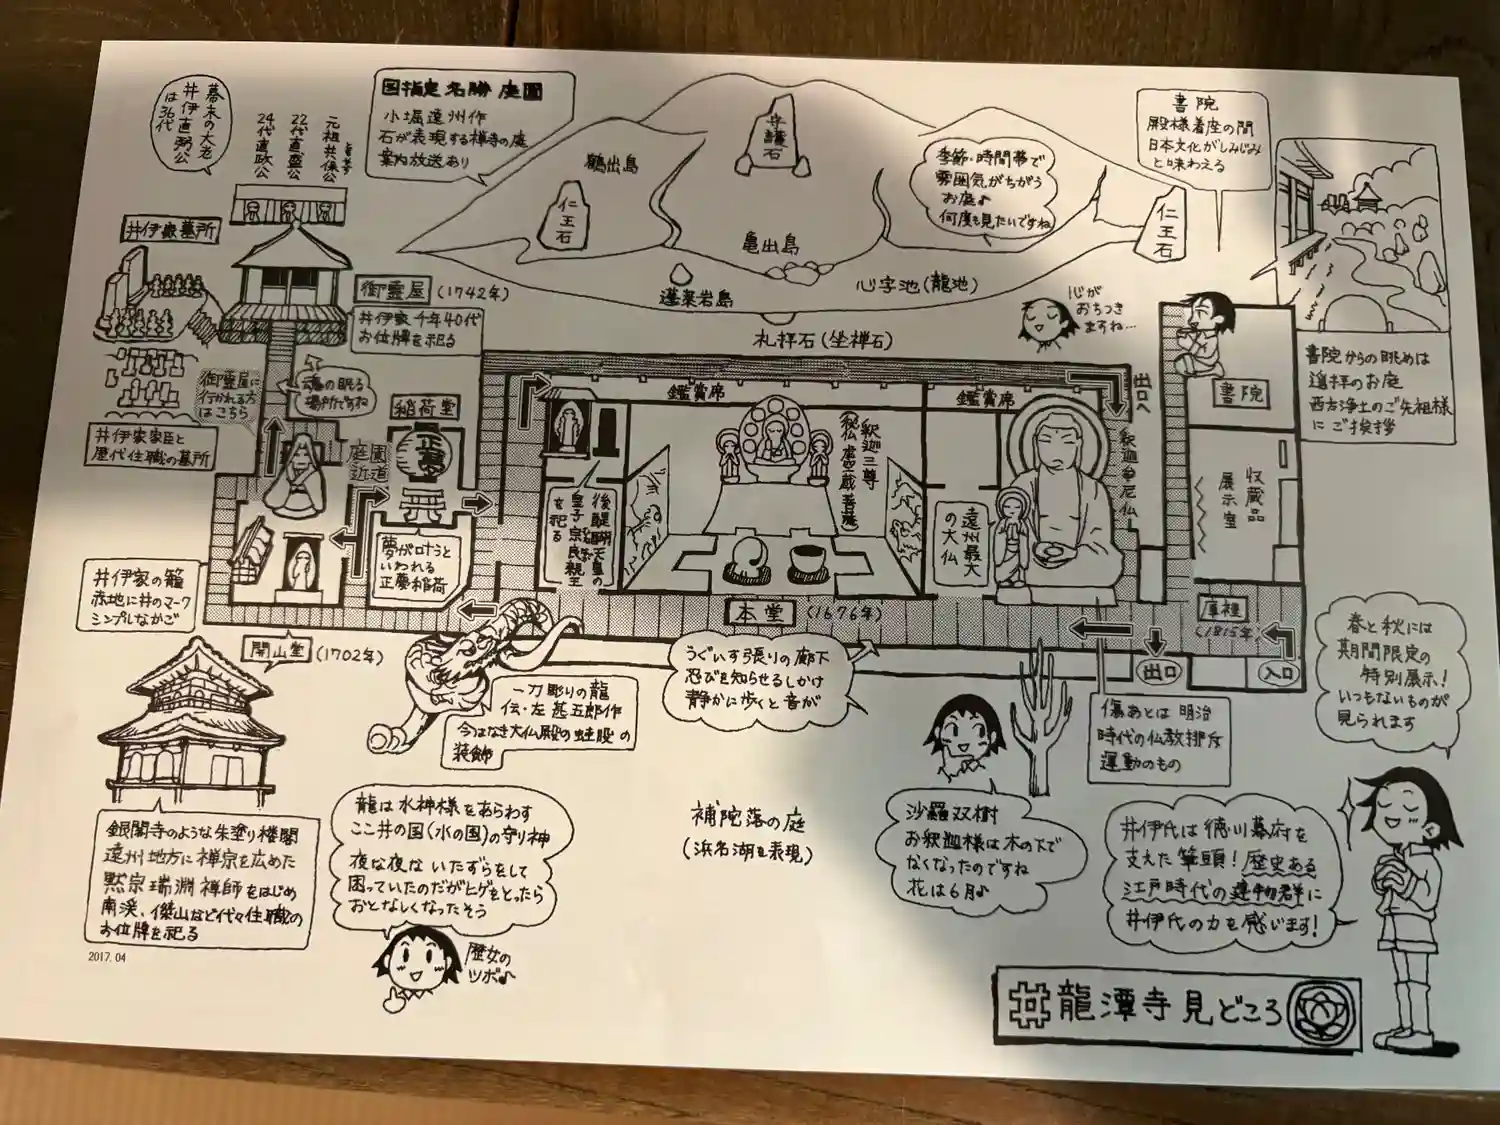 幕末の大老
井伊直弼公
は36代
24代直政公
22代直盛公
元祖共保公
国指定名勝庭園
小堀遠州作
石が表現する禅寺の庭
案内放送あり
鶴出島
守護石
仁王石
亀出島
蓬莱岩島
心字池(龍池)
仁王石
礼拝石(坐禅石)
季節・時間帯で
雰囲気がちがう
お庭♪
何度も見たいですね
書院
殿様着座の間
日本文化がしみじみ
と味わえる
心が
おちつき
ますね…
書院からの眺めは
遥拝のお庭
西方浄土のご先祖様
にご挨拶
井伊家墓所
御霊屋(1742年)
井伊家千年40代
お位牌を祀る
魂の眠る
場所ですね
御霊屋に
行かれる方
はこちら
井伊家家臣と
歴代住職の墓所
稲荷堂
正一位
庭園
近道
夢が叶うと
いわれる
正慶稲荷
井伊家の籠
赤地に井のマーク
シンプルなかご
開山堂(1702年)
鑑賞席
鑑賞席
後醍醐天皇の
皇子宗良親王
を祀る
釈迦三尊
秘仏虚空蔵菩薩
遠州最大
の大仏
釈迦牟尼仏
出口へ
書院
収蔵品
展示室
庫裡
(1815年)
本堂(1676年)
出口
入口
うぐいす張りの廊下
忍びを知らせるしかけ
静かに歩くと音が
一刀彫りの龍
伝・左甚五郎作
今はなき大仏殿の蛙股の
装飾
傷あとは明治
時代の仏教排斥
運動のもの
春と秋には
期間限定の
特別展示!
いつもないものが
見られます
銀閣寺のような朱塗り楼閣
遠州地方に禅宗を広めた
黙宗瑞淵禅師をはじめ
南渓、傑山など代々住職の
お位牌を祀る
2017.04
龍は水神様をあらわす
ここ井の国(水の国)の守り神
夜な夜なはいたずらをして
困っていたのだがヒゲをとったら
おとなしくなったそう
歴女の
ツボ♪
補陀落の庭
(浜名湖を表現)
沙羅双樹
お釈迦様は木の下で
なくなったのですね
花は6月♪
井伊氏は徳川幕府を
支えた筆頭!歴史ある
江戸時代の建物群に
井伊氏の力を感じます!
井龍潭寺見どころ